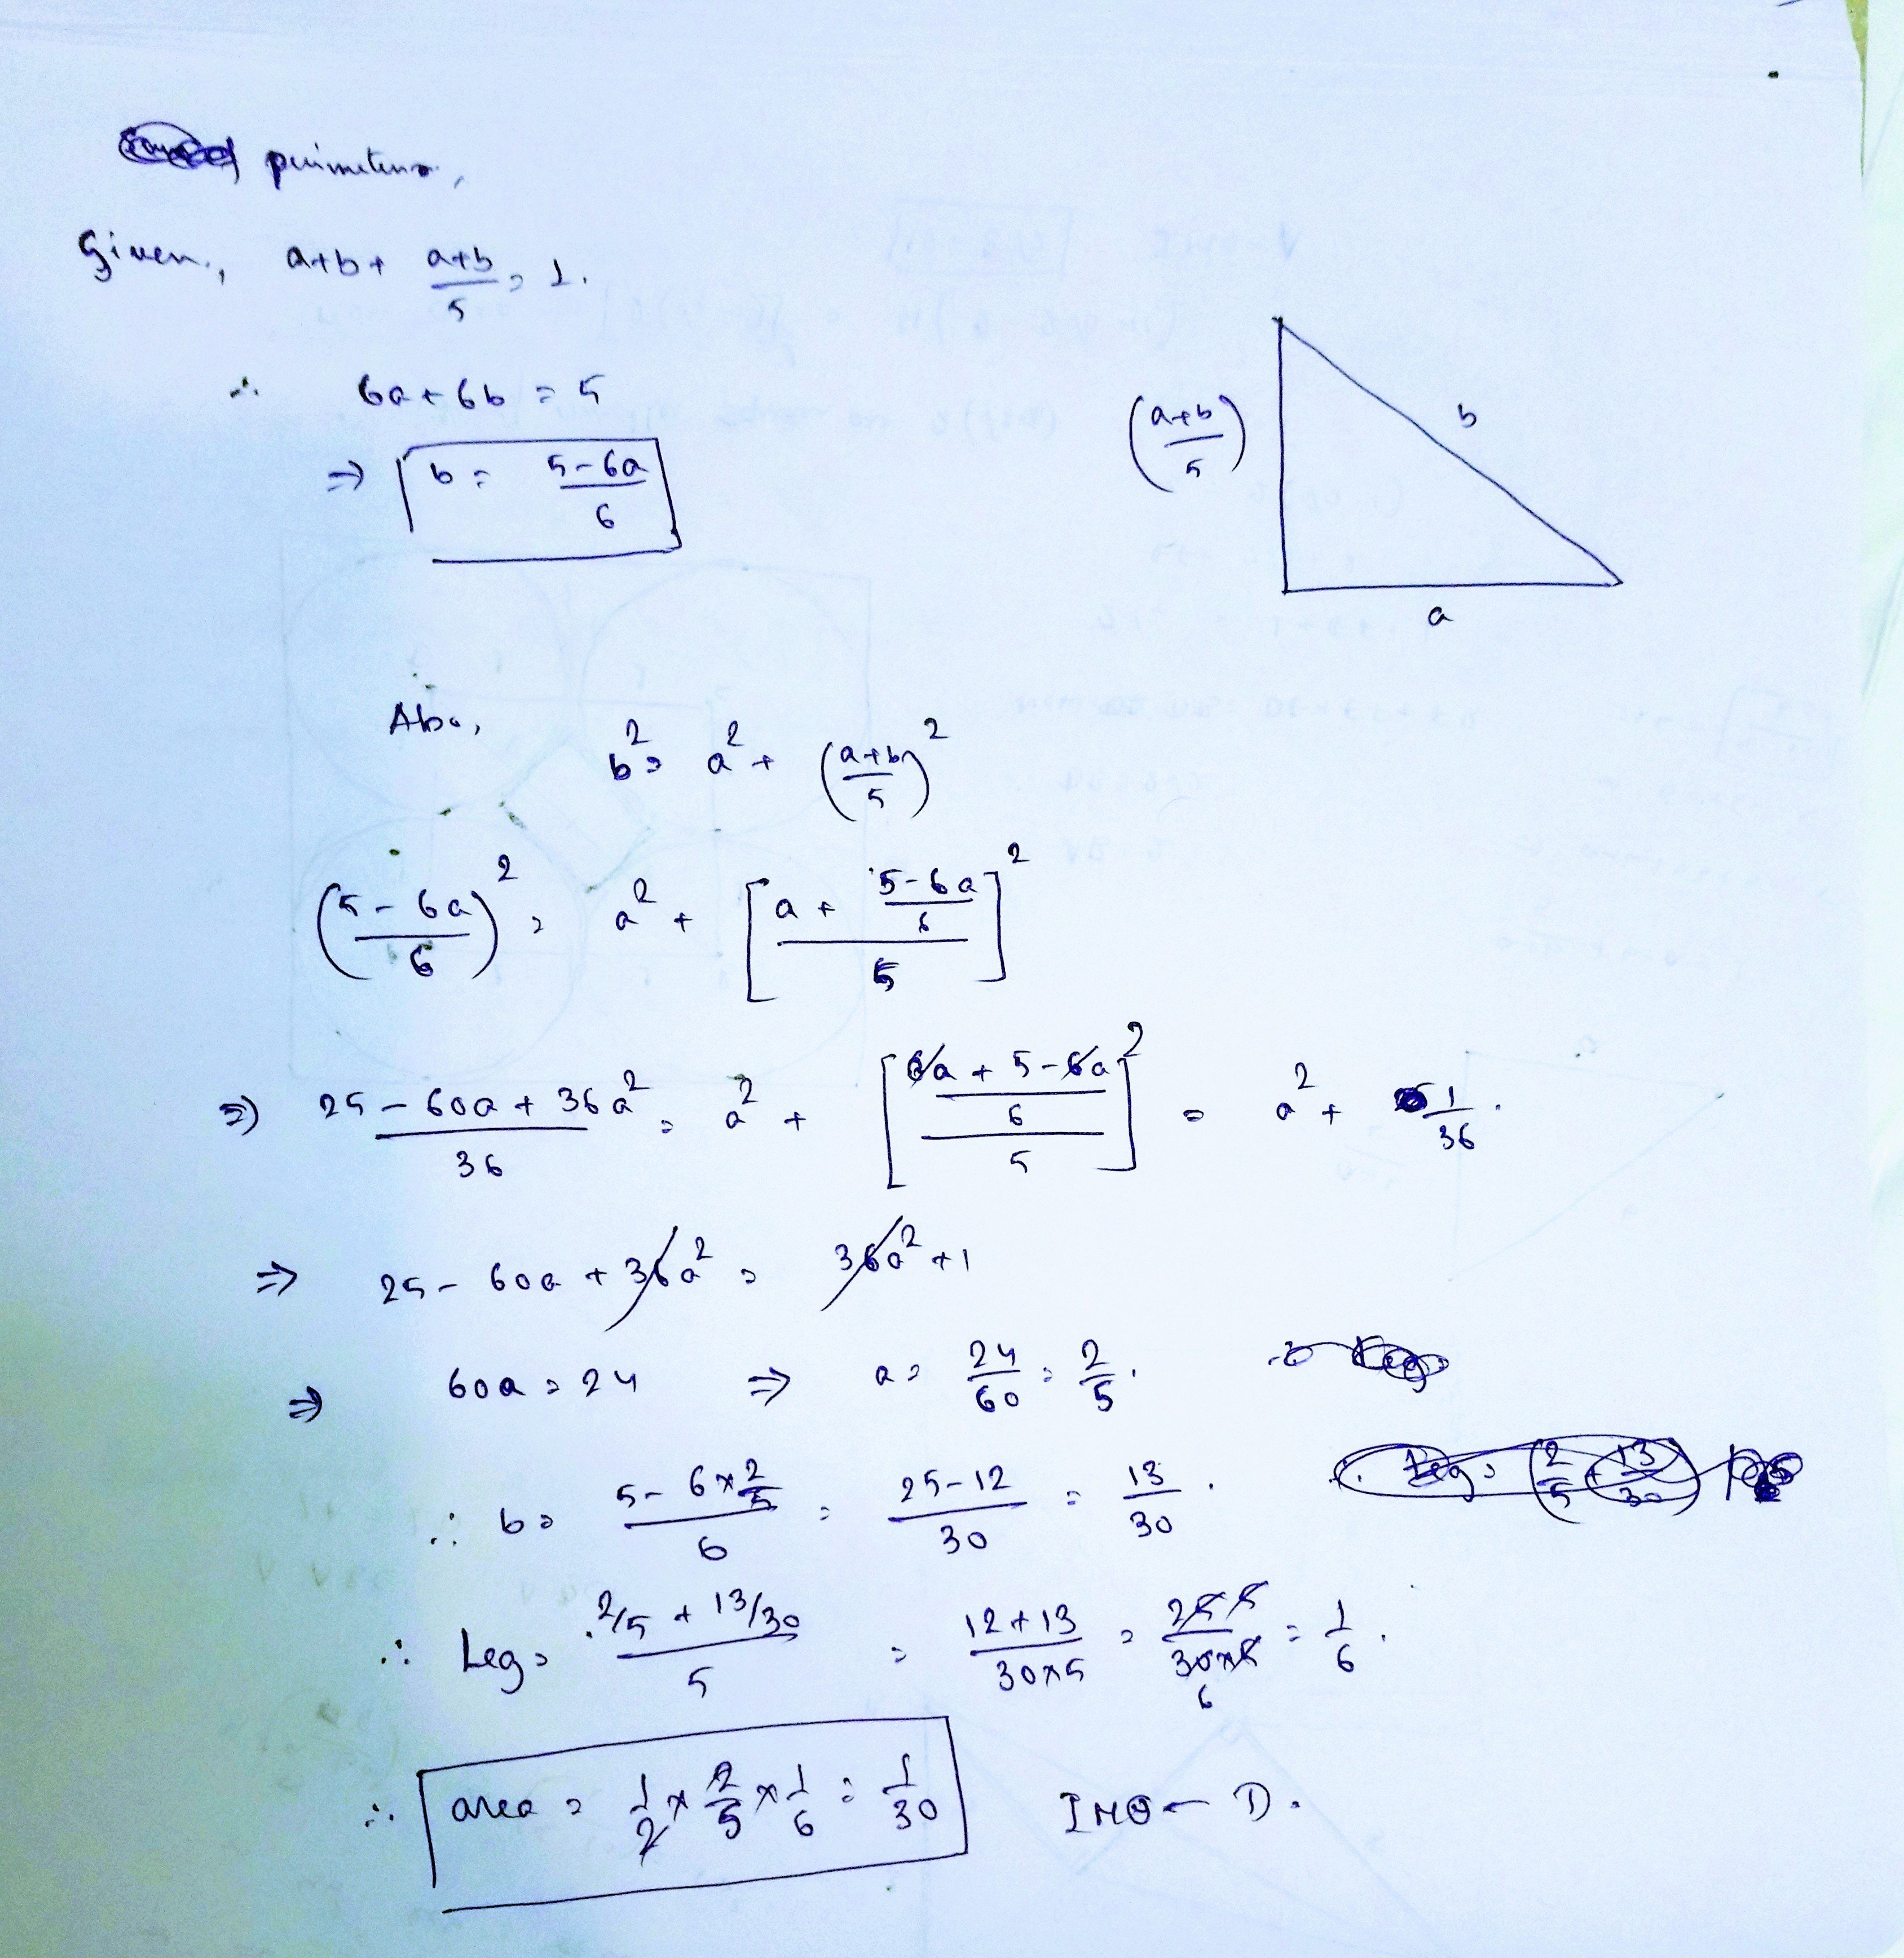 perimeter,
Given, a+b+ (a+b)/5 = 1.
∴ 6a+6b = 5
⇒ b = (5-6a)/6
((a+b)/5)
b
a
b² = a² + ((a+b)/5)²
((5-6a)/6)² = a² + [(a + (5-6a)/6)/5]²
⇒ (25-60a+36a²)/36 = a² + [((6a+5-6a)/6)/5]² = a² + 1/36.
⇒ 25-60a+36a² = 36a²+1
⇒ 60a = 24 ⇒ a = 24/60 = 2/5.
∴ b = (5-6×2/5)/6 = (25-12)/30 = 13/30.
∴ Leg = (2/5 + 13/30)/5 = (12+13)/(30×5) = 25/(30×5) = 1/6.
∴ area = 1/2 × 2/5 × 1/6 = 1/30 IMO - D.